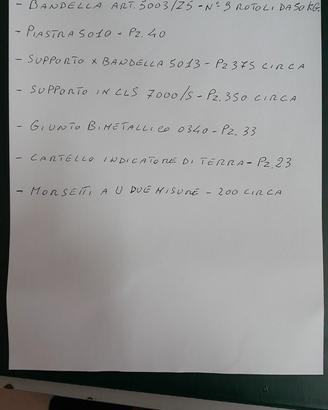 - BANDELLA ART. 5003/Z5 - N° 9 ROTOLI DA 50 KG.
- PIASTRA 5010 - PZ. 40
- SUPPORTO X BANDELLA 5013 - PZ 375 CIRCA
- SUPPORTO IN CLS 7000/S - PZ. 350 CIRCA
- GIUNTO BIMETALLICO 0340 - PZ. 33
- CARTELLO INDICATORE DI TERRA - PZ. 23
- MORSETTI A U DUE MISURE - 200 CIRCA